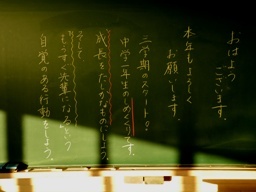 おはようございます。
本年もよろしくお願いします。
三学期のスタート!
中学一年生のしめくくりです。
成長をたしかなものにしよう。
そして
もうすぐ先輩になるという
自覚のある行動をしよう。